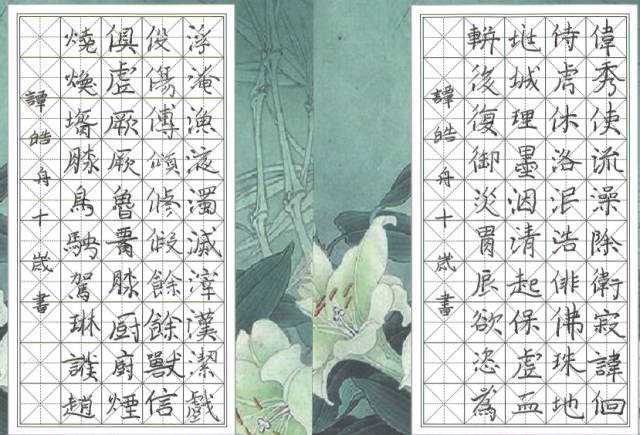 偉秀使流澡除衛寂諱佪
侍虏休洛泯浩俳佛珠地
址城理墨洇清起保虛皿
後復御災胃辰欲恣為
譚皓舟十歲書
浮淹漁液濁滅滓漢潔戲
役傷傅頌修假餘餘獸信
俱虛厥厥魯胥膝厨廚煙
燒煥壻膝鳥騁駕琳誰趙
譚皓舟十歲書